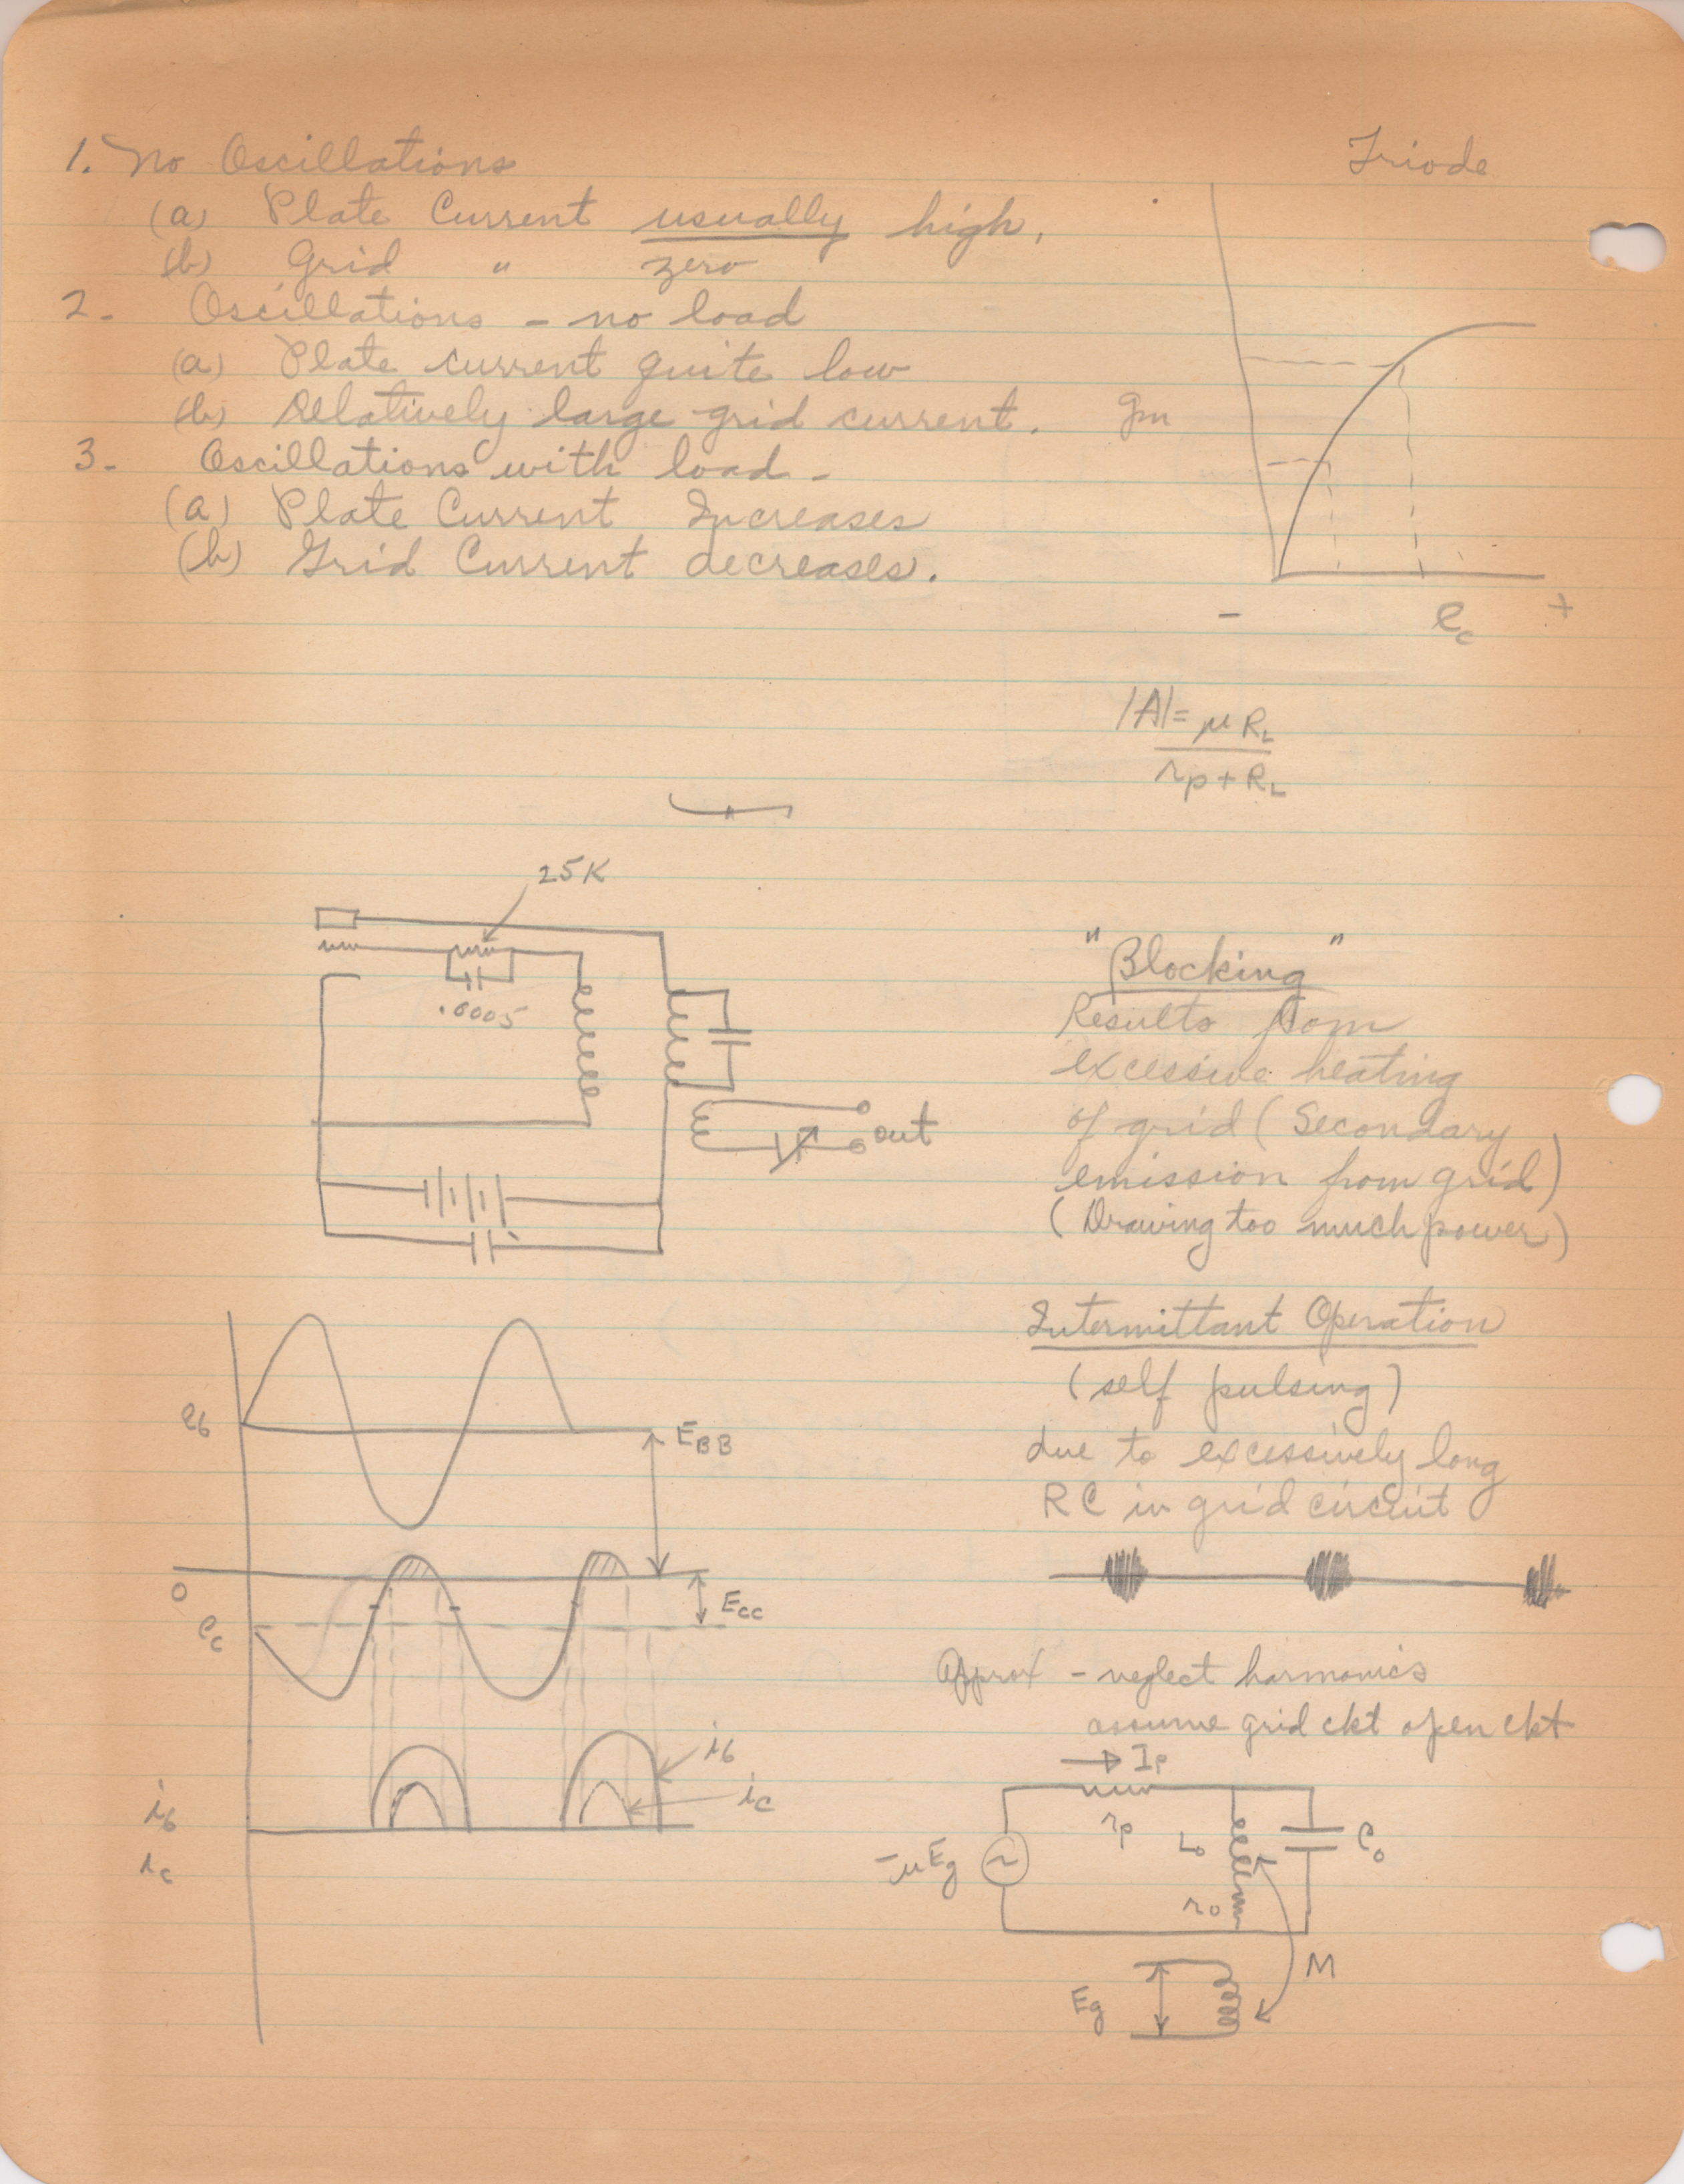 1. No Oscillations
(a) Plate Current usually high.
(b) Grid " zero
2. Oscillations - no load
(a) Plate current quite low
(b) Relatively large grid current.
3. Oscillations with load -
(a) Plate Current Increases
(b) Grid Current decreases.
Triode
gm
- ec +
|A| = μ RL
rp + RL
25K
.0005
out
"Blocking"
Results from
excessive heating
of grid (Secondary
emission from grid)
(Drawing too much power)
Intermittant Operation
(self pulsing)
due to excessively long
RC in grid circuit
eb
EBB
0
ECC
ec
ib
ic
ib
ic
Approx - neglect harmonics
assume grid ckt open ckt
Ip
rp
Lo
Co
-μEg
ro
M
Eg